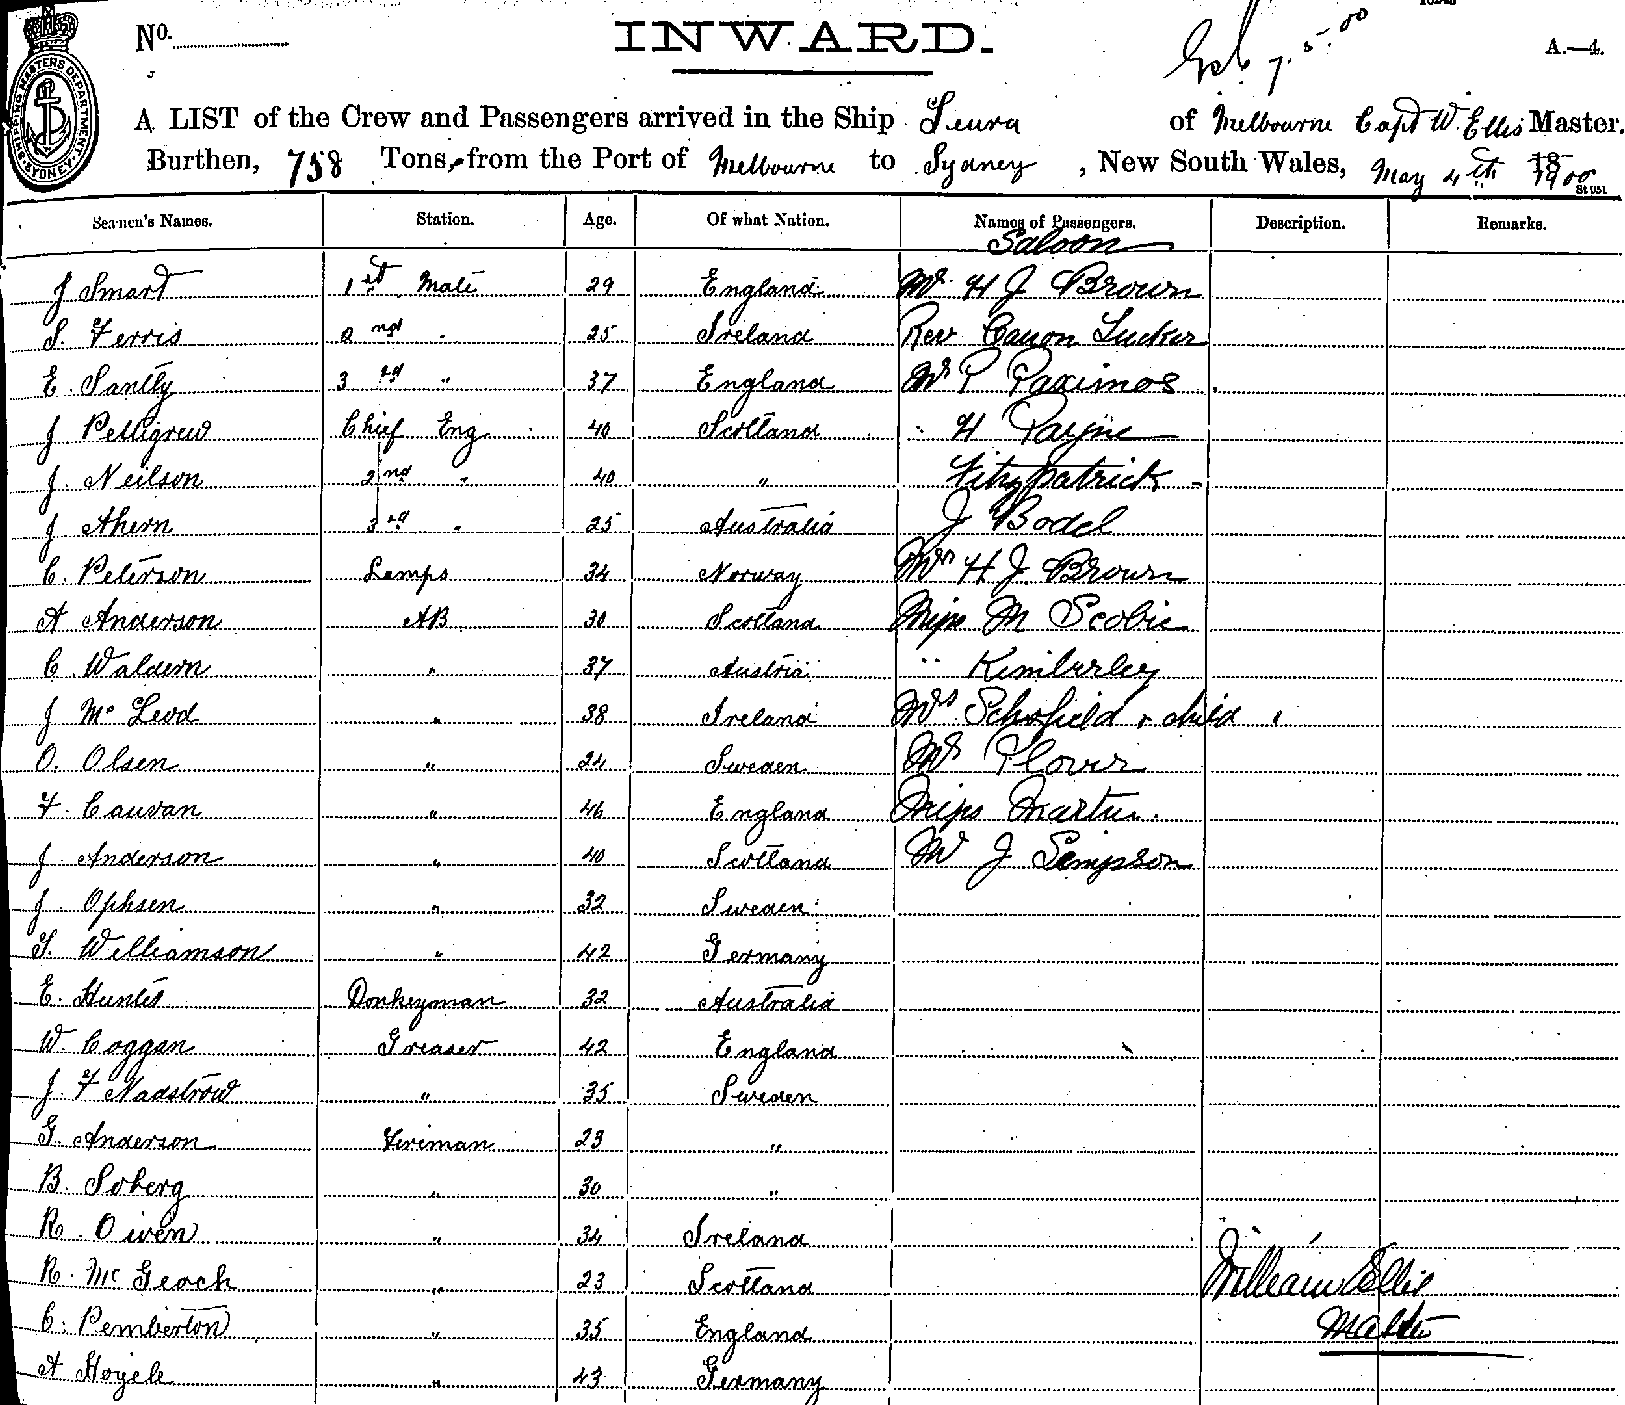 No.
INWARD.
7.5.00
A.—4.
SHIPPING MASTERS DEPARTMENT SYDNEY
A LIST of the Crew and Passengers arrived in the Ship of Melbourne Capt W. Ellis Master.
Burthen, 758 Tons, from the Port of Melbourne to Sydney, New South Wales, May 4th 1900
Seamen's Names. Station. Age. Of what Nation. Names of Passengers. Description. Remarks.
Saloon
J Smart 1st Mate 29 England Mr H J Brown
S. Ferris 2nd " 25 Ireland Rev Canon Tucker
E. Santly 3rd " 37 England Mr P Paximos
J Pettigrew Chief Eng 40 Scotland " H Payne
J. Neilson 2nd " 40 " Fitzpatrick
J Ahern 3rd " 25 Australia J Bodel
C. Peterson Lamps 34 Norway Mrs H J. Brown
A Anderson AB 30 Scotland Miss M Scobie
C. Waldern " 37 Austria " Kimberley
J McLeod " 38 Ireland Mrs Schofield & child
O. Olsen " 24 Sweden Mr Plover
F. Cauvan " 46 England Miss Martin
J Anderson " 40 Scotland Mr J Simpson
J. Ophsen " 32 Sweden
Williamson " 42 Germany
E. Hunter Donkeyman 32 Australia
W. Coggan Greaser 42 England
J. F Nadstrow " 35 Sweden
G. Anderson Fireman 23 "
B. Soberg " 30 "
R. Owen " 34 Ireland
R. McGeoch " 23 Scotland William Ellis
C. Pemberton " 35 England Master
A Hoyele " 43 Germany